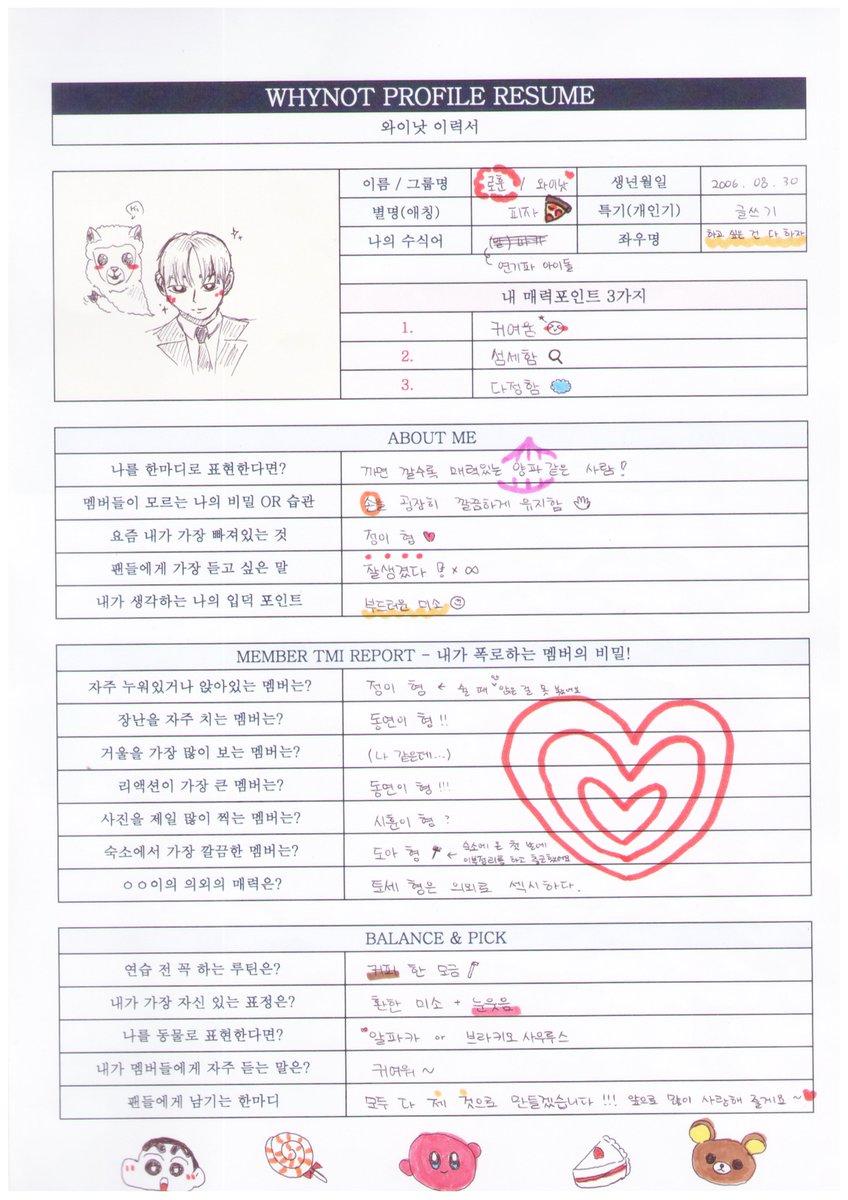 WHYNOT PROFILE RESUME
와이낫 이력서
Hi
이름 / 그룹명 로훈 / 와이낫 생년월일 2006. 08. 30
별명(애칭) 피자 특기(개인기) 글쓰기
나의 수식어 좌우명 하고 싶은 건 다 하자
연기파 아이돌
내 매력포인트 3가지
1. 귀여움
2. 섬세함
3. 다정함
ABOUT ME
나를 한마디로 표현한다면? 까면 깔수록 매력있는 양파같은 사람!
멤버들이 모르는 나의 비밀 OR 습관 손톱 굉장히 깔끔하게 유지함
요즘 내가 가장 빠져있는 것 정이 형
팬들에게 가장 듣고 싶은 말 잘생겼다 !! × ∞
내가 생각하는 나의 입덕 포인트 부드러운 미소
MEMBER TMI REPORT - 내가 폭로하는 멤버의 비밀!
자주 누워있거나 앉아있는 멤버는? 정이 형 ← 쉴 때 앉은 걸 못 봤어요
장난을 자주 치는 멤버는? 동연이 형!!
거울을 가장 많이 보는 멤버는? (나 같은데...)
리액션이 가장 큰 멤버는? 동연이 형!!!
사진을 제일 많이 찍는 멤버는? 시훈이 형?
숙소에서 가장 깔끔한 멤버는? 도아 형 ← 숙소에 온 첫 날에
이불정리를 하고 출근했어요
ㅇㅇ이의 의외의 매력은? 토세 형은 의외로 섹시하다.
BALANCE & PICK
연습 전 꼭 하는 루틴은? 커피 한 모금
내가 가장 자신 있는 표정은? 환한 미소 + 눈웃음
나를 동물로 표현한다면? 알파카 or 브라키오사우루스
내가 멤버들에게 자주 듣는 말은? 귀여워 ~
팬들에게 남기는 한마디 모두 다 제 것으로 만들겠습니다!!! 앞으로 많이 사랑해 줄게요 ~